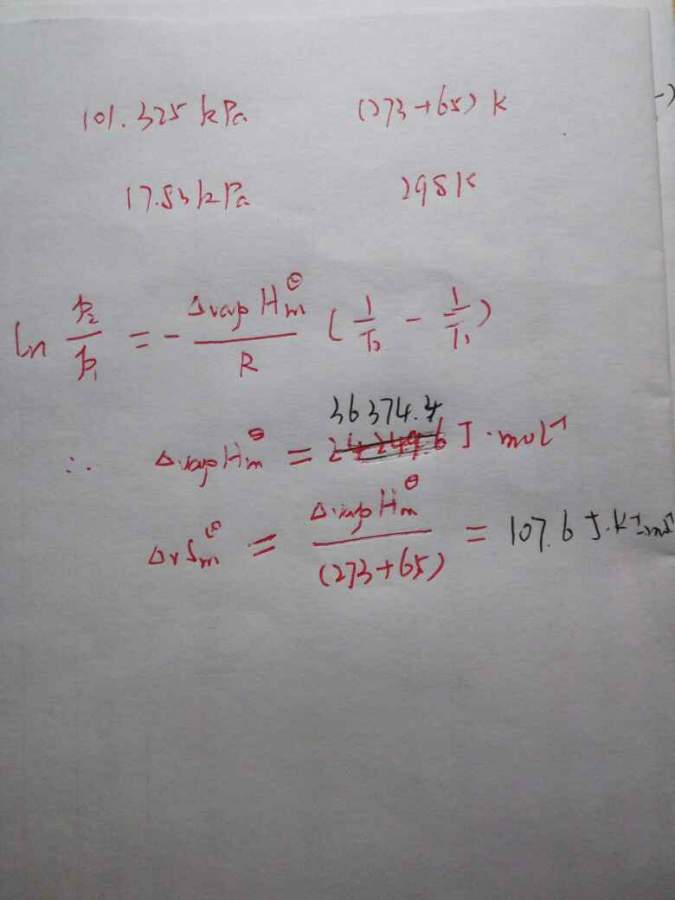 101.325 kPa (273+65) K
17.83 kPa 298K
ln p₂/p₁ = - ΔvapHm^⊖/R (1/T₂ - 1/T₁)
36374.4
∴ ΔvapHm^⊖ = J·mol⁻¹
ΔrSm^⊖ = ΔvapHm^⊖/(273+65) = 107.6 J·K⁻¹·mol⁻¹